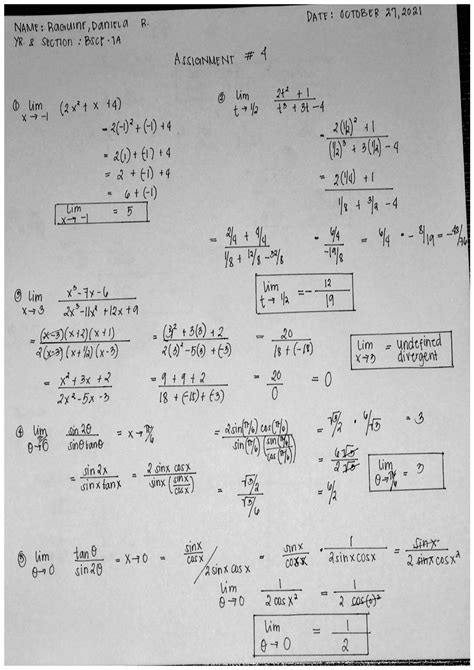 NAME: Raguine, Daniela R.
DATE: OCTOBER 27, 2021
YR & Section: BSCE-1A
ASSIGNMENT # 4
① lim x→-1 (2x² + x + 4)
= 2(-1)² + (-1) + 4
= 2(1) + (-1) + 4
= 2 + (-1) + 4
= 6 + (-1)
lim x→-1 = 5
② lim t→1/2 2t² + 1 / t³ + 3t - 4
= 2(1/2)² + 1 / (1/2)³ + 3(1/2) - 4
= 2(1/4) + 1 / 1/8 + 3/2 - 4
= 2/4 + 4/4 / 1/8 + 12/8 - 32/8 = 6/4 / -19/8 = 6/4 · - 8/19 = -48/76
lim t→1/2 = - 12/19
③ lim x→3 x³ - 7x - 6 / 2x³ - 11x² + 12x + 9
= (x-3)(x+2)(x+1) / 2(x-3)(x+1/2)(x-3) = (3)² + 3(3) + 2 / 2(3)² - 5(3) + (-3) = 20 / 18 + (-18)
= x² + 3x + 2 / 2x² - 5x - 3 = 9 + 9 + 2 / 18 + (-15) + (-3) = 20 / 0 = 0
lim x→3 = undefined divergent
④ lim θ→π/6 sin 2θ / sinθ tanθ = x→π/6 = 2 sin(π/6) cos(π/6) / sin(π/6) (sin(π/6) / cos(π/6)) = √3/2 · 6/√3 = 3
= sin 2x / sin x tan x = 2 sin x cos x / sin x (sin x / cos x) = √3/2 / √3/6 = 6√3 / 2√3
= 6/2
lim θ→π/6 = 3
⑤ lim θ→0 tan θ / sin 2θ = x→0 = sin x / cos x / 2 sin x cos x = sin x / cos x · 1 / 2 sin x cos x = sin x / 2 sin x cos x²
lim θ→0 1 / 2 cos x² = 1 / 2 cos(0)²
lim θ→0 = 1/2